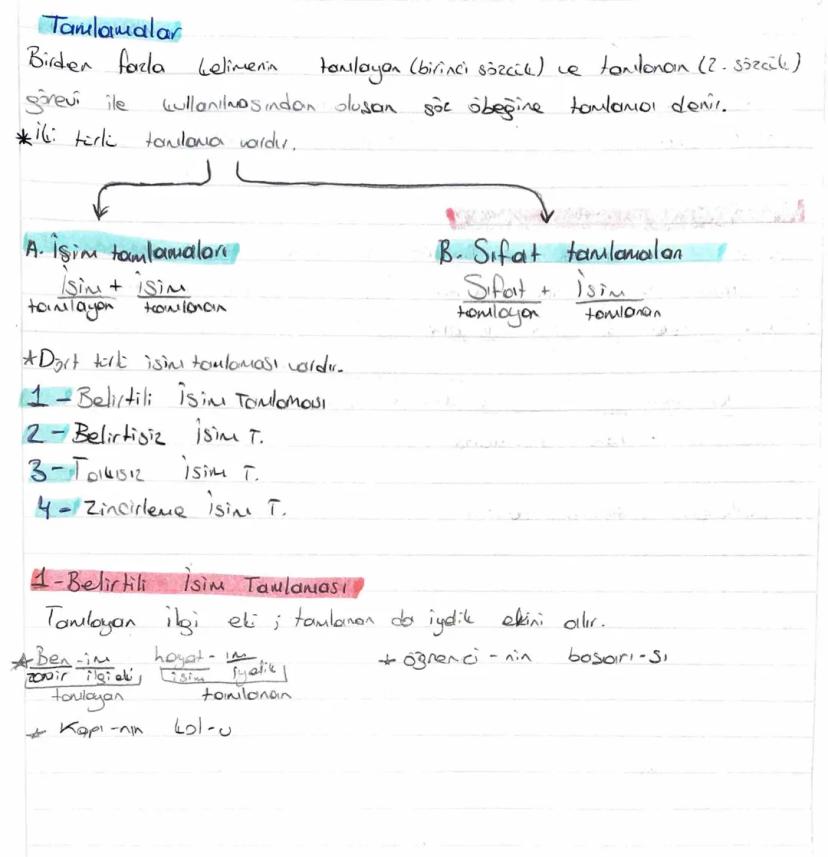 Tamlamalar
Birden fazla kelimenin tamlayan (birinci sözcük) ve tamlanan (2. sözcük)
görevi ile kullanılmasından oluşan söz öbeğine tamlama denir.
*İki türlü tamlama vardır.
A. İsim tamlamaları
B. Sıfat tamlamaları
İsim + isim
tamlayan tamlanan
Sıfat + İsim
tamlayan tamlanan
*Dört türlü isim tamlaması vardır.
1 - Belirtili İsim Tamlaması
2 - Belirtisiz İsim T.
3 - Takısız İsim T.
4 - Zincirleme İsim T.
1 - Belirtili İsim Tamlaması
Tamlayan ilgi eki ; tamlanan da iyelik ekini alır.
* Ben - im hayat - ım * öğrenci - nin başarı - sı
zamir ilgi eki isim iyelik
tamlayan tamlanan
* Kapı - nın kol - u